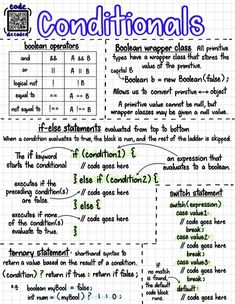 code
decoded
Conditionals
boolean operators
and && A && B
or || A || B
logical not ! ! B
equal to == A == B
not equal to != A != B
Boolean wrapper class All primitive
types have a wrapper class that stores the
value of the primitive.
capital B
Boolean b = new Boolean(false);
Allows us to convert primitive ↔ object
A primitive value cannot be null, but
wrapper classes may be given a null value.
if-else statements evaluated from top to bottom
When a condition evaluates to true, the block is run, and the rest of the ladder is skipped.
The if keyword
starts the conditional
executes if the
preceding condition(s)
are false.
executes if none
of the condition(s)
evaluate to true.
if (condition1) {
// code goes here
} else if (condition2) {
// code goes here
} else {
// code goes here
}
an expression that
evaluates to a boolean
switch statement
switch(expression) {
case value1:
// code goes here
break;
case value2:
// code goes here
break;
default:
// code goes here
}
If
no match
is found,
the default
code block
runs.
ternary statement - shorthand syntax to
return a value based on the result of a condition.
(condition) ? return if true : return if false;
boolean myBool = false;
int num = (myBool) ? 1 : 0;